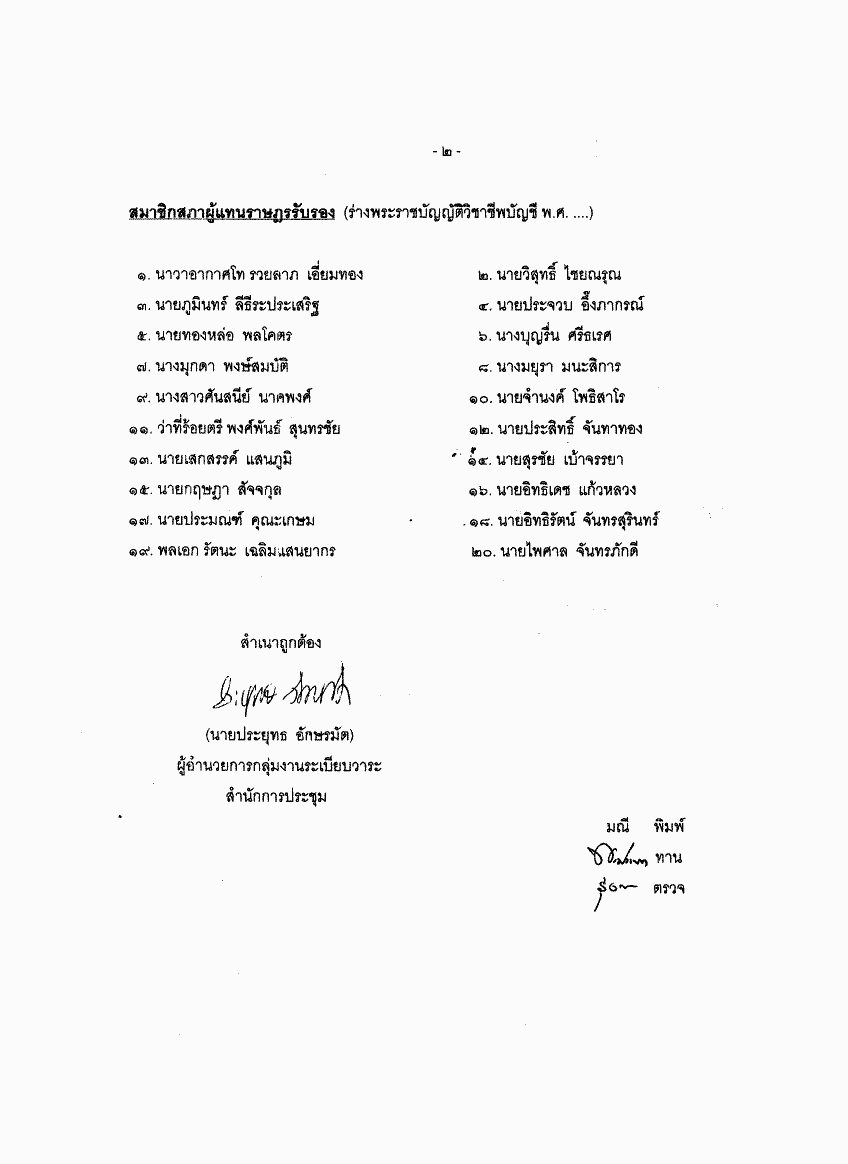 - ๒ -
สมาชิกสภาผู้แทนราษฎรรับรอง (ร่างพระราชบัญญัติวิชาชีพบัญชี พ.ศ. ....)
๑. นาวาอากาศโท รวยลาภ เอี่ยมทอง ๒. นายวิสุทธิ์ ไชยณรุณ
๓. นายภูมินทร์ ลีธีระประเสริฐ ๔. นายประจวบ อึ๊งภากรณ์
๕. นายทองหล่อ พลโคตร ๖. นางบุญรื่น ศรีธเรศ
๗. นางมุกดา พงษ์สมบัติ ๘. นางมยุรา มนะสิการ
๙. นางสาวศันสนีย์ นาคพงศ์ ๑๐. นายจำนงค์ โพธิสาโร
๑๑. ว่าที่ร้อยตรี พงศ์พันธ์ สุนทรชัย ๑๒. นายประสิทธิ์ จันทาทอง
๑๓. นายเสกสรรค์ แสนภูมิ ๑๔. นายสุรชัย เบ้าจรรยา
๑๕. นายกฤษฎา สัจจกุล ๑๖. นายอิทธิเดช แก้วหลวง
๑๗. นายประมณฑ์ คุณะเกษม ๑๘. นายอิทธิรัตน์ จันทรสุรินทร์
๑๙. พลเอก รัตนะ เฉลิมแสนยากร ๒๐. นายไพศาล จันทรภักดี
สำเนาถูกต้อง
(นายประยุทธ อักษรมัต)
ผู้อำนวยการกลุ่มงานระเบียบวาระ
สำนักการประชุม
มณี พิมพ์
ทาน
ตรวจ